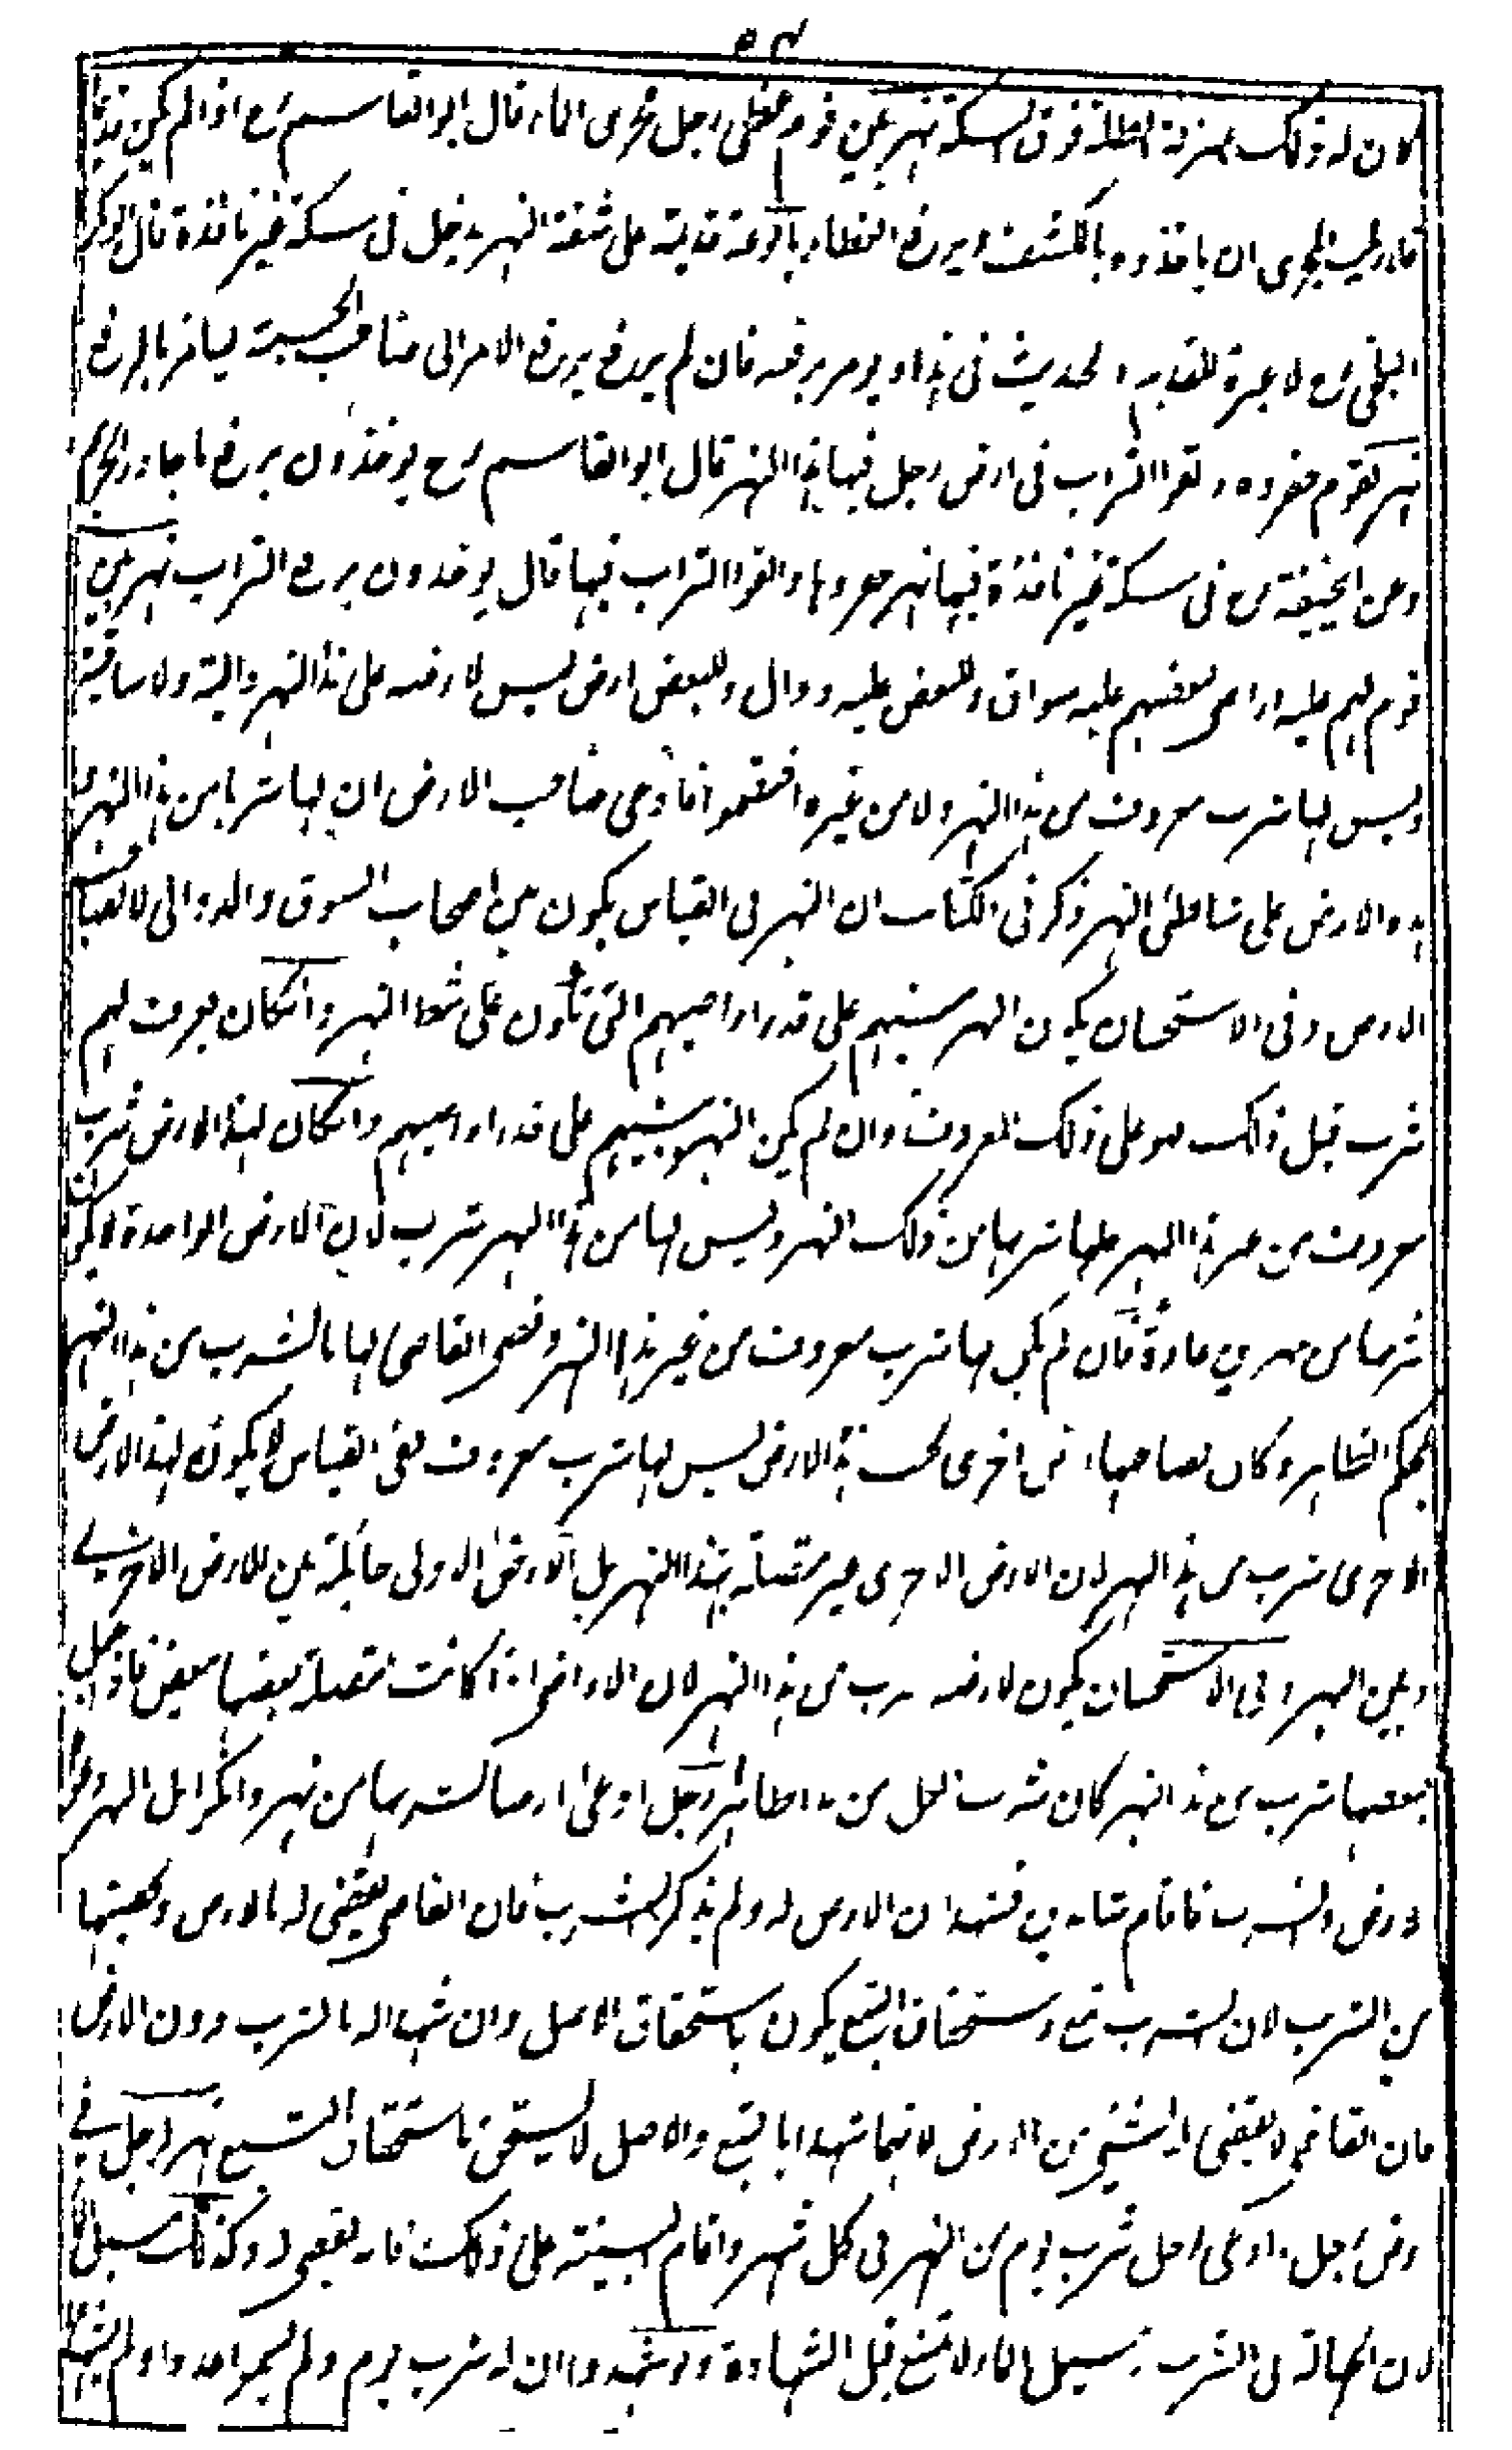 كان له ذلك بمنزلة الظلة فوق السكة نهر بين قوم فغطى رجل مجرى الماء قال ابو القاسم رح اذا لم يكن قديما
فلاهل المجرى ان ياخذوه بالكشف ويرفع الغطاء بالوعة قديمة على شفة النهر يدخل فى سكة غير نافذة قال ابو بكر
البلخى رح لا عبرة للقديم والحديث فى هذا ويومر برفعه فان لم يرفع يرفع الامر الى صاحب الحسبة ليامر بالرفع
نهر لقوم حفروه والقوا التراب فى ارض رجل فيها هذا النهر قال ابو القاسم رح يوخذون برفع ما جاوز الحريم
وعن ابى حنيفة رح فى سكة غير نافذة فيها نهر حفروها والقوا التراب فيها قال يوخذون برفع التراب نهر بين
قوم لهم عليه اراضى لبعضهم عليه سواق ولبعض عليه دوال ولبعض ارض ليس لارضه على هذا النهر دالية ولا ساقية
وليس لها شرب معروف من هذا النهر ولا من غيره اختصموا فادعى صاحب الارض ان لها شربا من هذا النهر
هذه الارض على شاطئ النهر ذكر فى الكتاب ان النهر فى القياس يكون بين اصحاب السوق والدوالى لا لصاحب
الارض وفى الاستحسان يكون النهر بينهم على قدر اراضيهم التى تكون على شط النهر وان كان يعرف لهم
شرب قبل ذلك فهو على ذلك المعروف وان لم يكن النهر بينهم على قدر اراضيهم وان كان لهذا الارض شرب
معروف من غير هذا النهر فلها شربها من ذلك النهر وليس لها من هذا النهر شرب لان الارض الواحدة لا يكون
شربها من نهرين عادة فان لم يكن لها شرب معروف من غير هذا النهر وقضى القاضى لها بالشرب من هذا النهر
بحكم الظاهر وكان لصاحبها ارض اخرى بجنب هذا الارض ليس لها شرب معروف ففى القياس لا يكون لهذا الارض
الاخرى شرب من هذا النهر لان الارض الاخرى غير متصلة بهذا النهر بل الارض الاولى حائلة بين الارض الاخرى
وبين النهر وفى الاستحسان يكون لارضه شرب من هذا النهر لان الاراضى اذا كانت متصلة بعضها ببعض فاذا جعل
لبعضها شرب من هذا النهر كان شرب الكل من هذا ظاهرا رجل ادعى ارضا لشربها من نهر وانكر اهل النهر
الارض والشرب فاقام شاهدين فشهدا ان الارض له ولم يذكر الشرب فان القاضى يقضى له بالارض وبحصتها
من الشرب لان الشرب تبع واستحقاق التبع يكون باستحقاق الاصل وان شهدا له بالشرب دون الارض
فان القاضى لا يقضى له بشئ من الارض لانهما شهدا بالتبع والاصل لا يستحق باستحقاق التبع نهر لرجل فى
ارض رجل ادعى رجل شرب يوم من النهر فى كل شهر واقام البينة على ذلك فانه يقضى له وكذلك مسيل الماء
لان الجهالة فى الشرب ومسيل الماء لا تمنع قبل الشهادة ولو شهدوا ان له شرب يوم ولم يسموا عددا ولم يشهدا